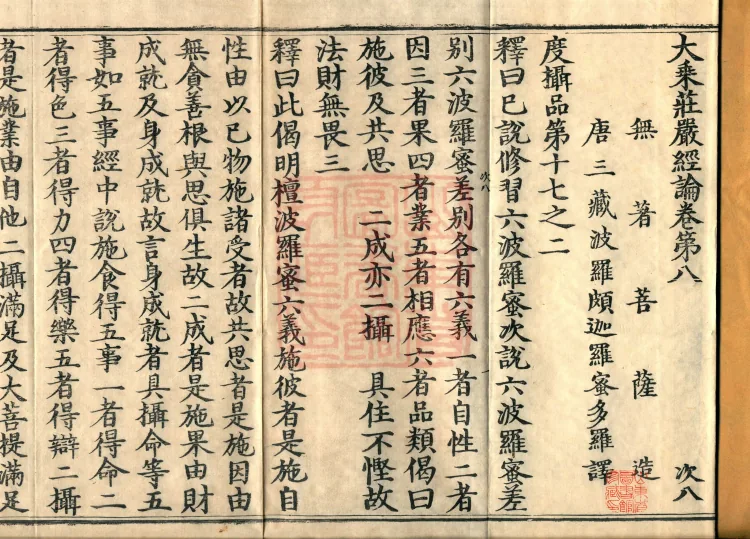 大乘莊嚴經論卷第八 次八
無著菩薩造
唐三藏波羅頗迦羅蜜多羅譯
度攝品第十七之二
釋曰已說修習六波羅蜜次說六波羅蜜差
別六波羅蜜差別各有六義一者自性二者
次八
因三者果四者業五者相應六者品類偈曰
施彼及共思 二成亦二攝 具住不慳故
法財無畏三
釋曰此偈明檀波羅蜜六義施彼者是施自
性由以已物施諸受者故共思者是施因由
無貪善根與思俱生故二成者是施果由財
成就及身成就故言身成就者具攝命等五
事如五事經中說施食得五事一者得命二
者得色三者得力四者得樂五者得辯二攝
者是施業由自他二攝滿足及大菩提滿足